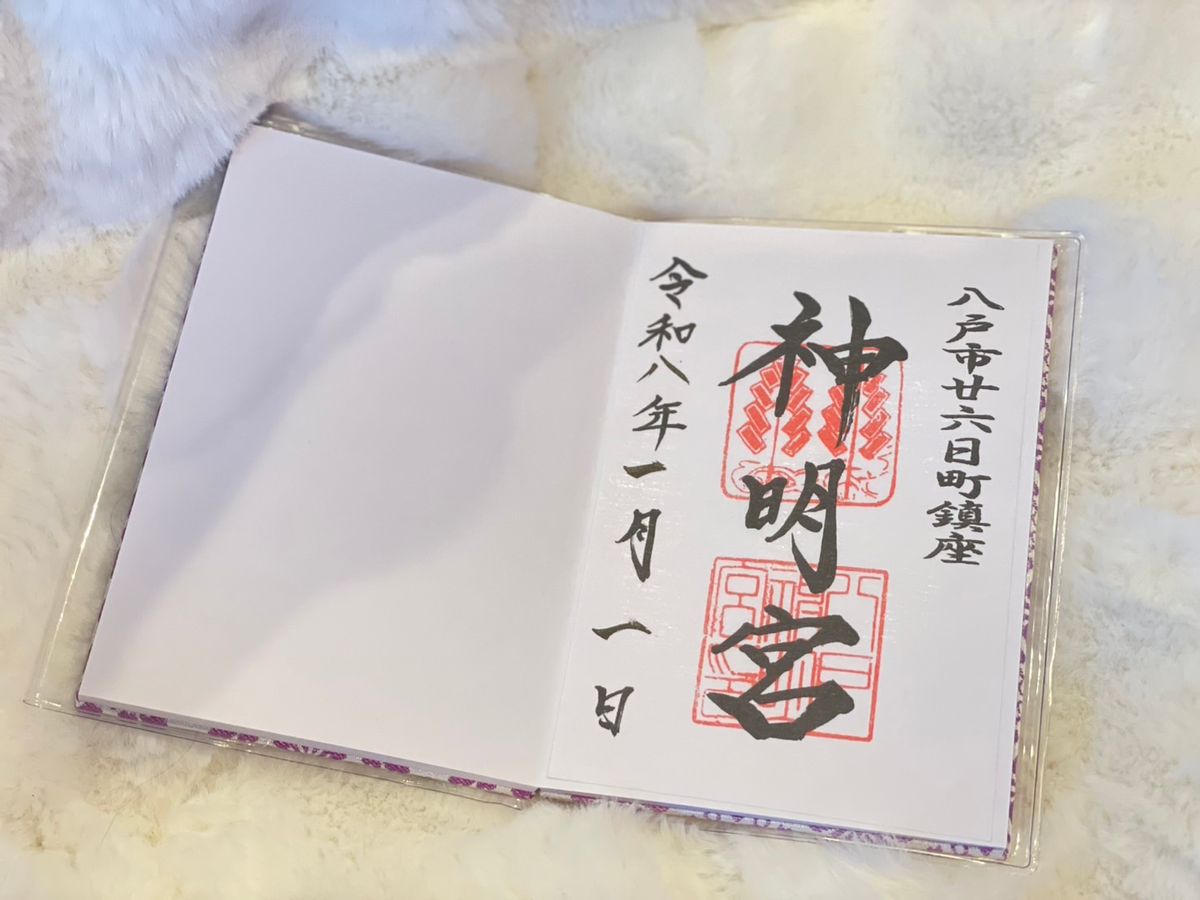 八戸市廿六日町鎮座
神明宮
令和八年一月一日